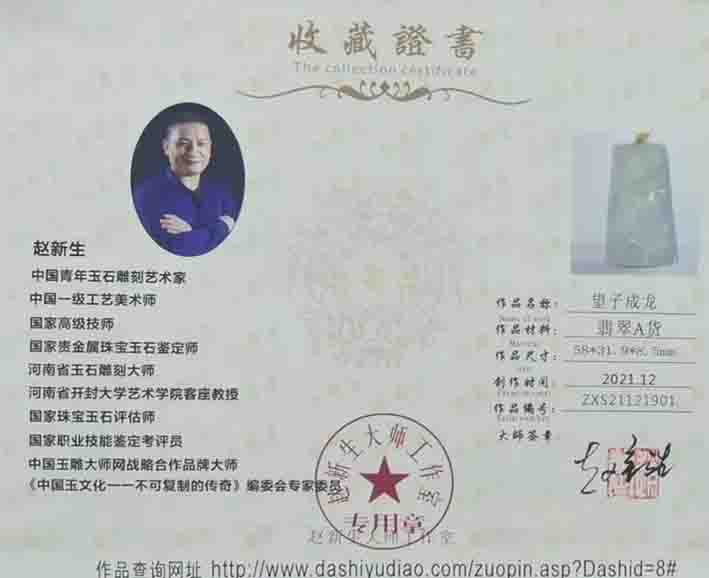 收藏證書
The collection certificate
赵新生
中国青年玉石雕刻艺术家
中国一级工艺美术师
国家高级技师
国家贵金属珠宝玉石鉴定师
河南省玉石雕刻大师
河南省开封大学艺术学院客座教授
国家珠宝玉石评估师
国家职业技能鉴定考评员
中国玉雕大师网战略合作品牌大师
《中国玉文化一一不可复制的传奇》编委会专家委员
作品名称： 望子成龙
作品材料： 翡翠A货
作品尺寸： 58*31.9*8.5mm
创作时间： 2021.12
作品编号： ZXS21121901
大师签章：
赵新生大师工作室
专用章
赵新生大师工作室
作品查询网址 http://www.dashiyudiao.com/zuopin.asp?Dashid=8#